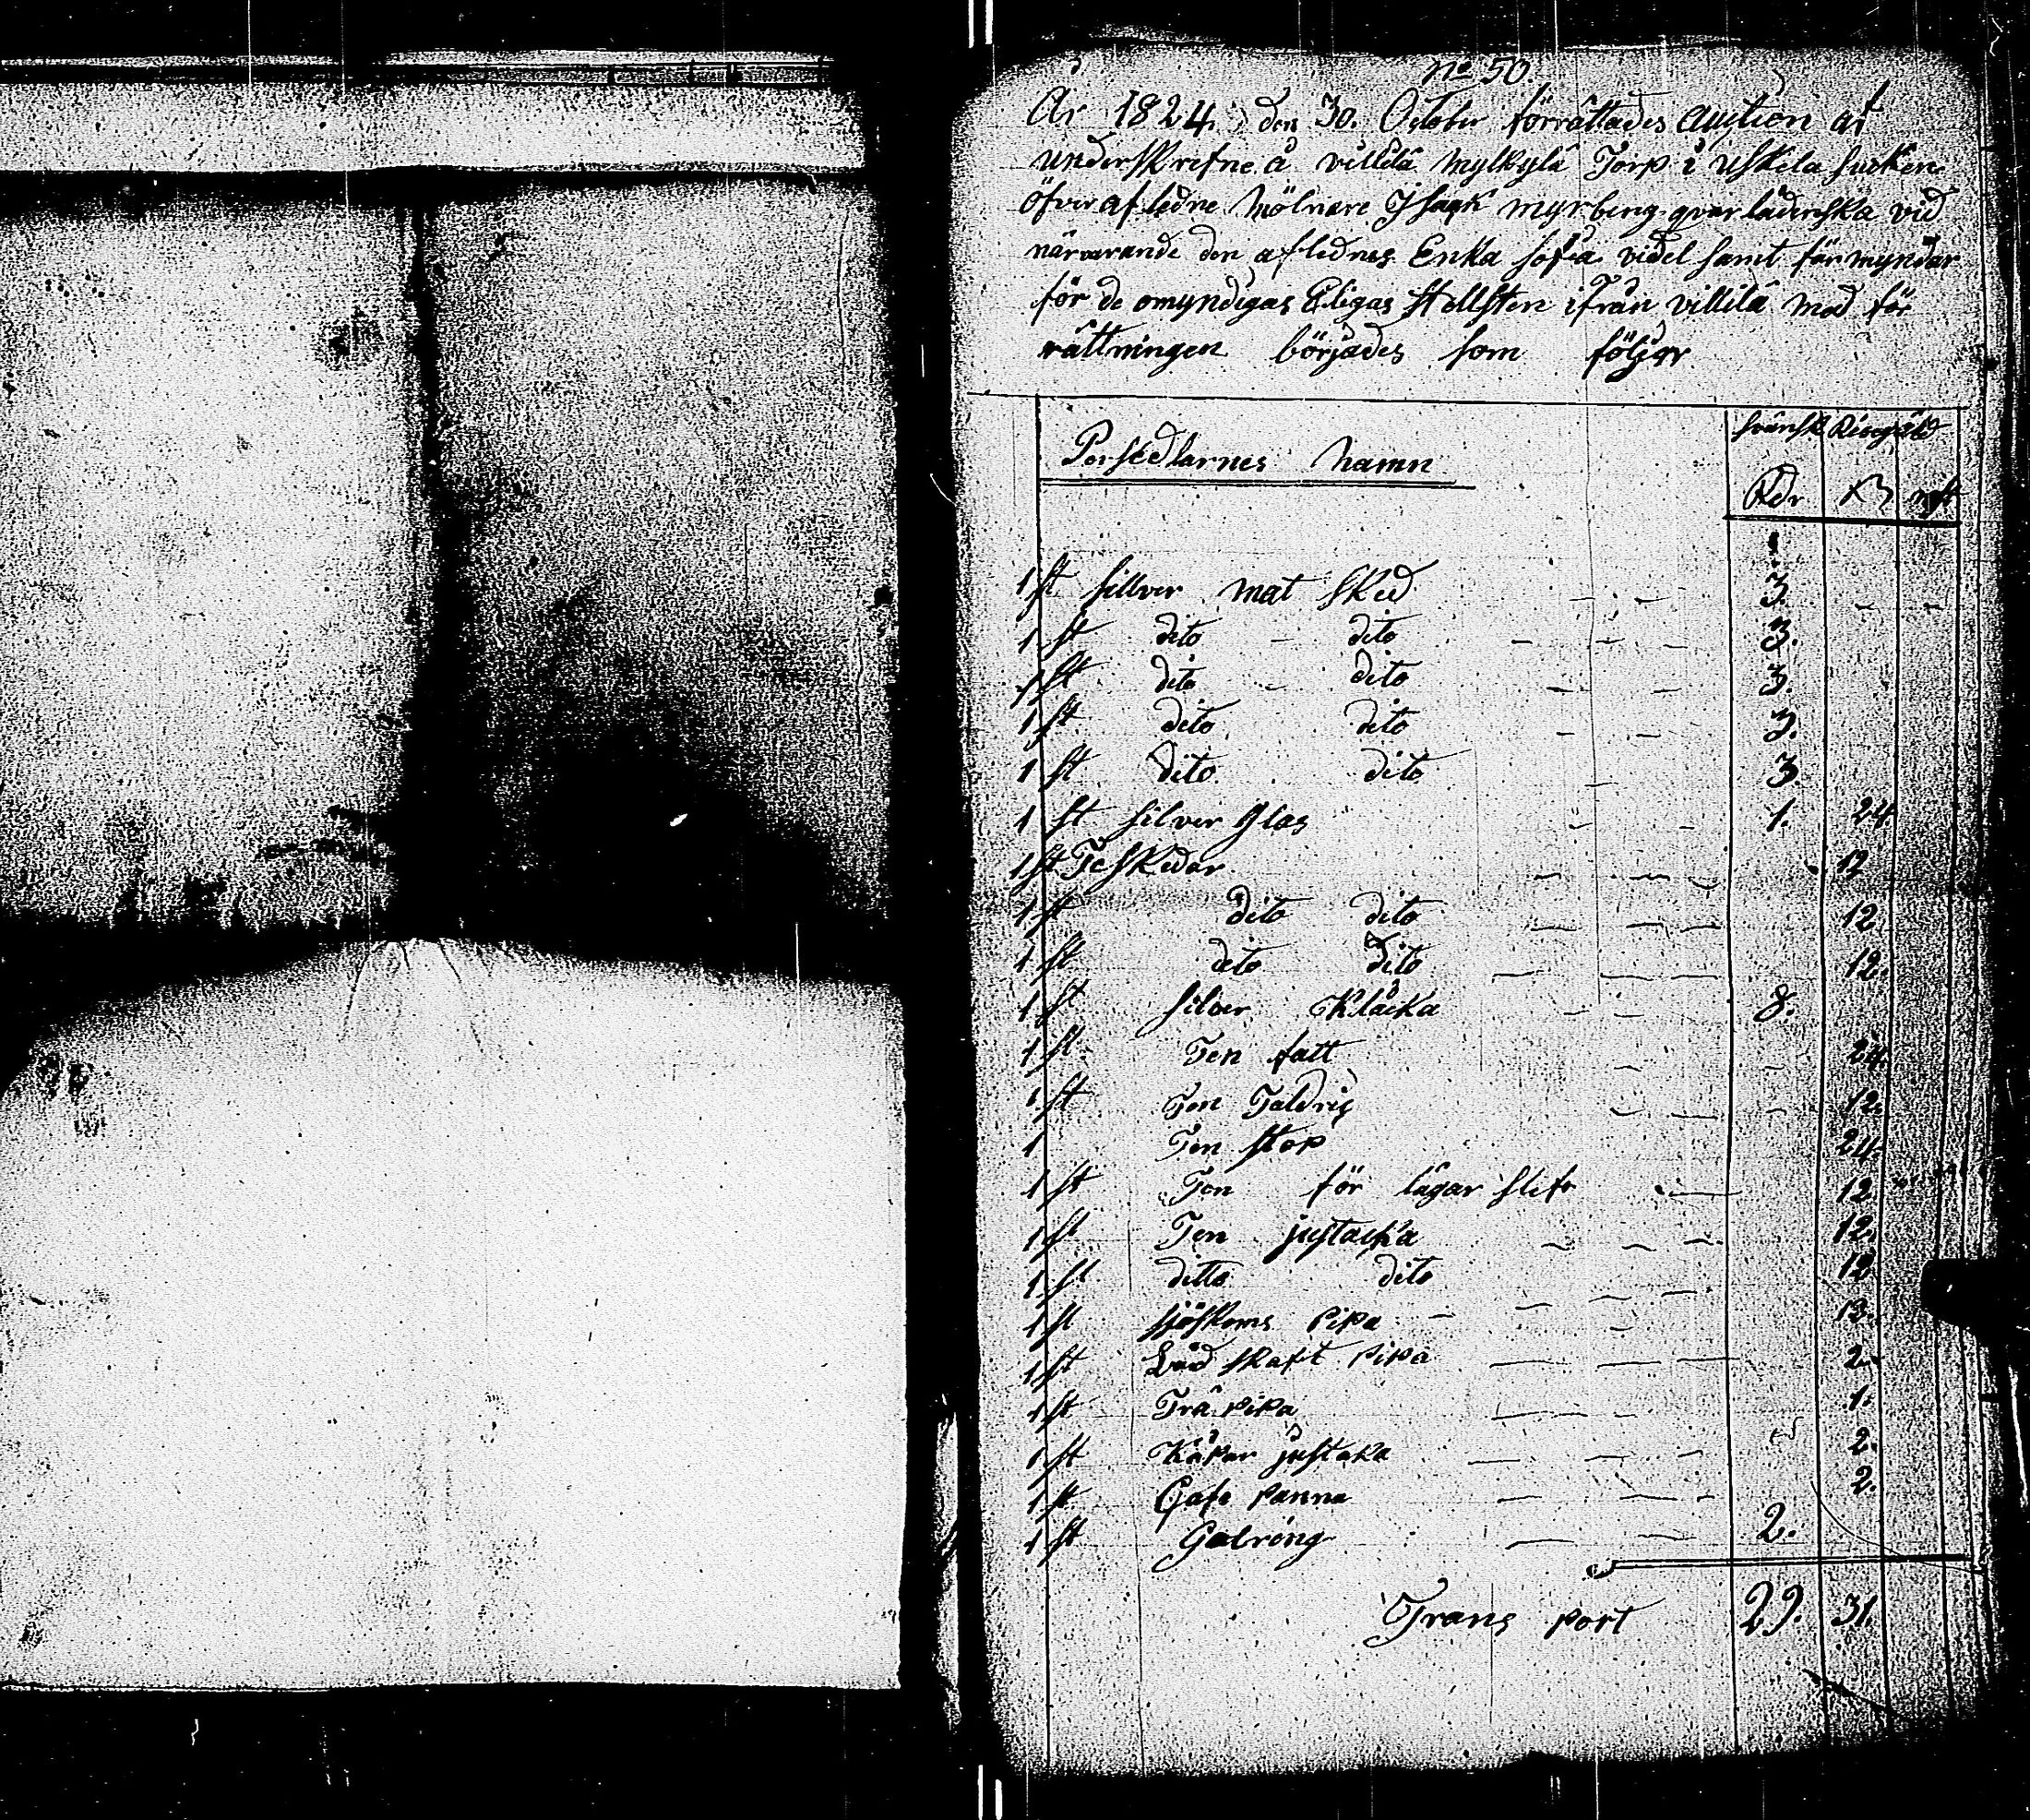 No 50.
År 1824 den 30. October förrättades Auction af
underskrefne å villilä mylkylä Torp i Uskela sucken
öfver afledne Mölnare Isaak myrberg qvarlådenska vid
närvarande den aflednes Enka sofia videl samt förmyndar
för de omyndigas Eligas Hellsten ifrån villilä mod för
rättningen börjades som följer
svensk Riesgäld
Persedlarnes Namn
Rdr ß rst
1 st sillver mat sked 3.
1 st dito dito 3.
1 st dito dito 3.
1 st dito dito 3.
1 st dito dito 3
1 st silver glas 1. 24
1 st Teskedar 12
1 st dito dito 12
1 st dito dito 12.
1 st silver Klåcka 8.
1 st Ten fatt 24.
1 st Ten Taldrig 12.
1 Ten stop 24.
1 st Ten för lägar slef 12
1 st Ten justacka 12.
1 st ditto dito 12
1 st sjöskoms Pipa 12.
1 st skaft pipa 2.
1 st Trä pipa 1.
1 st Kåpar justaka 2.
1 st Cafe panna 2.
1 st 2.
Trans port 29. 31